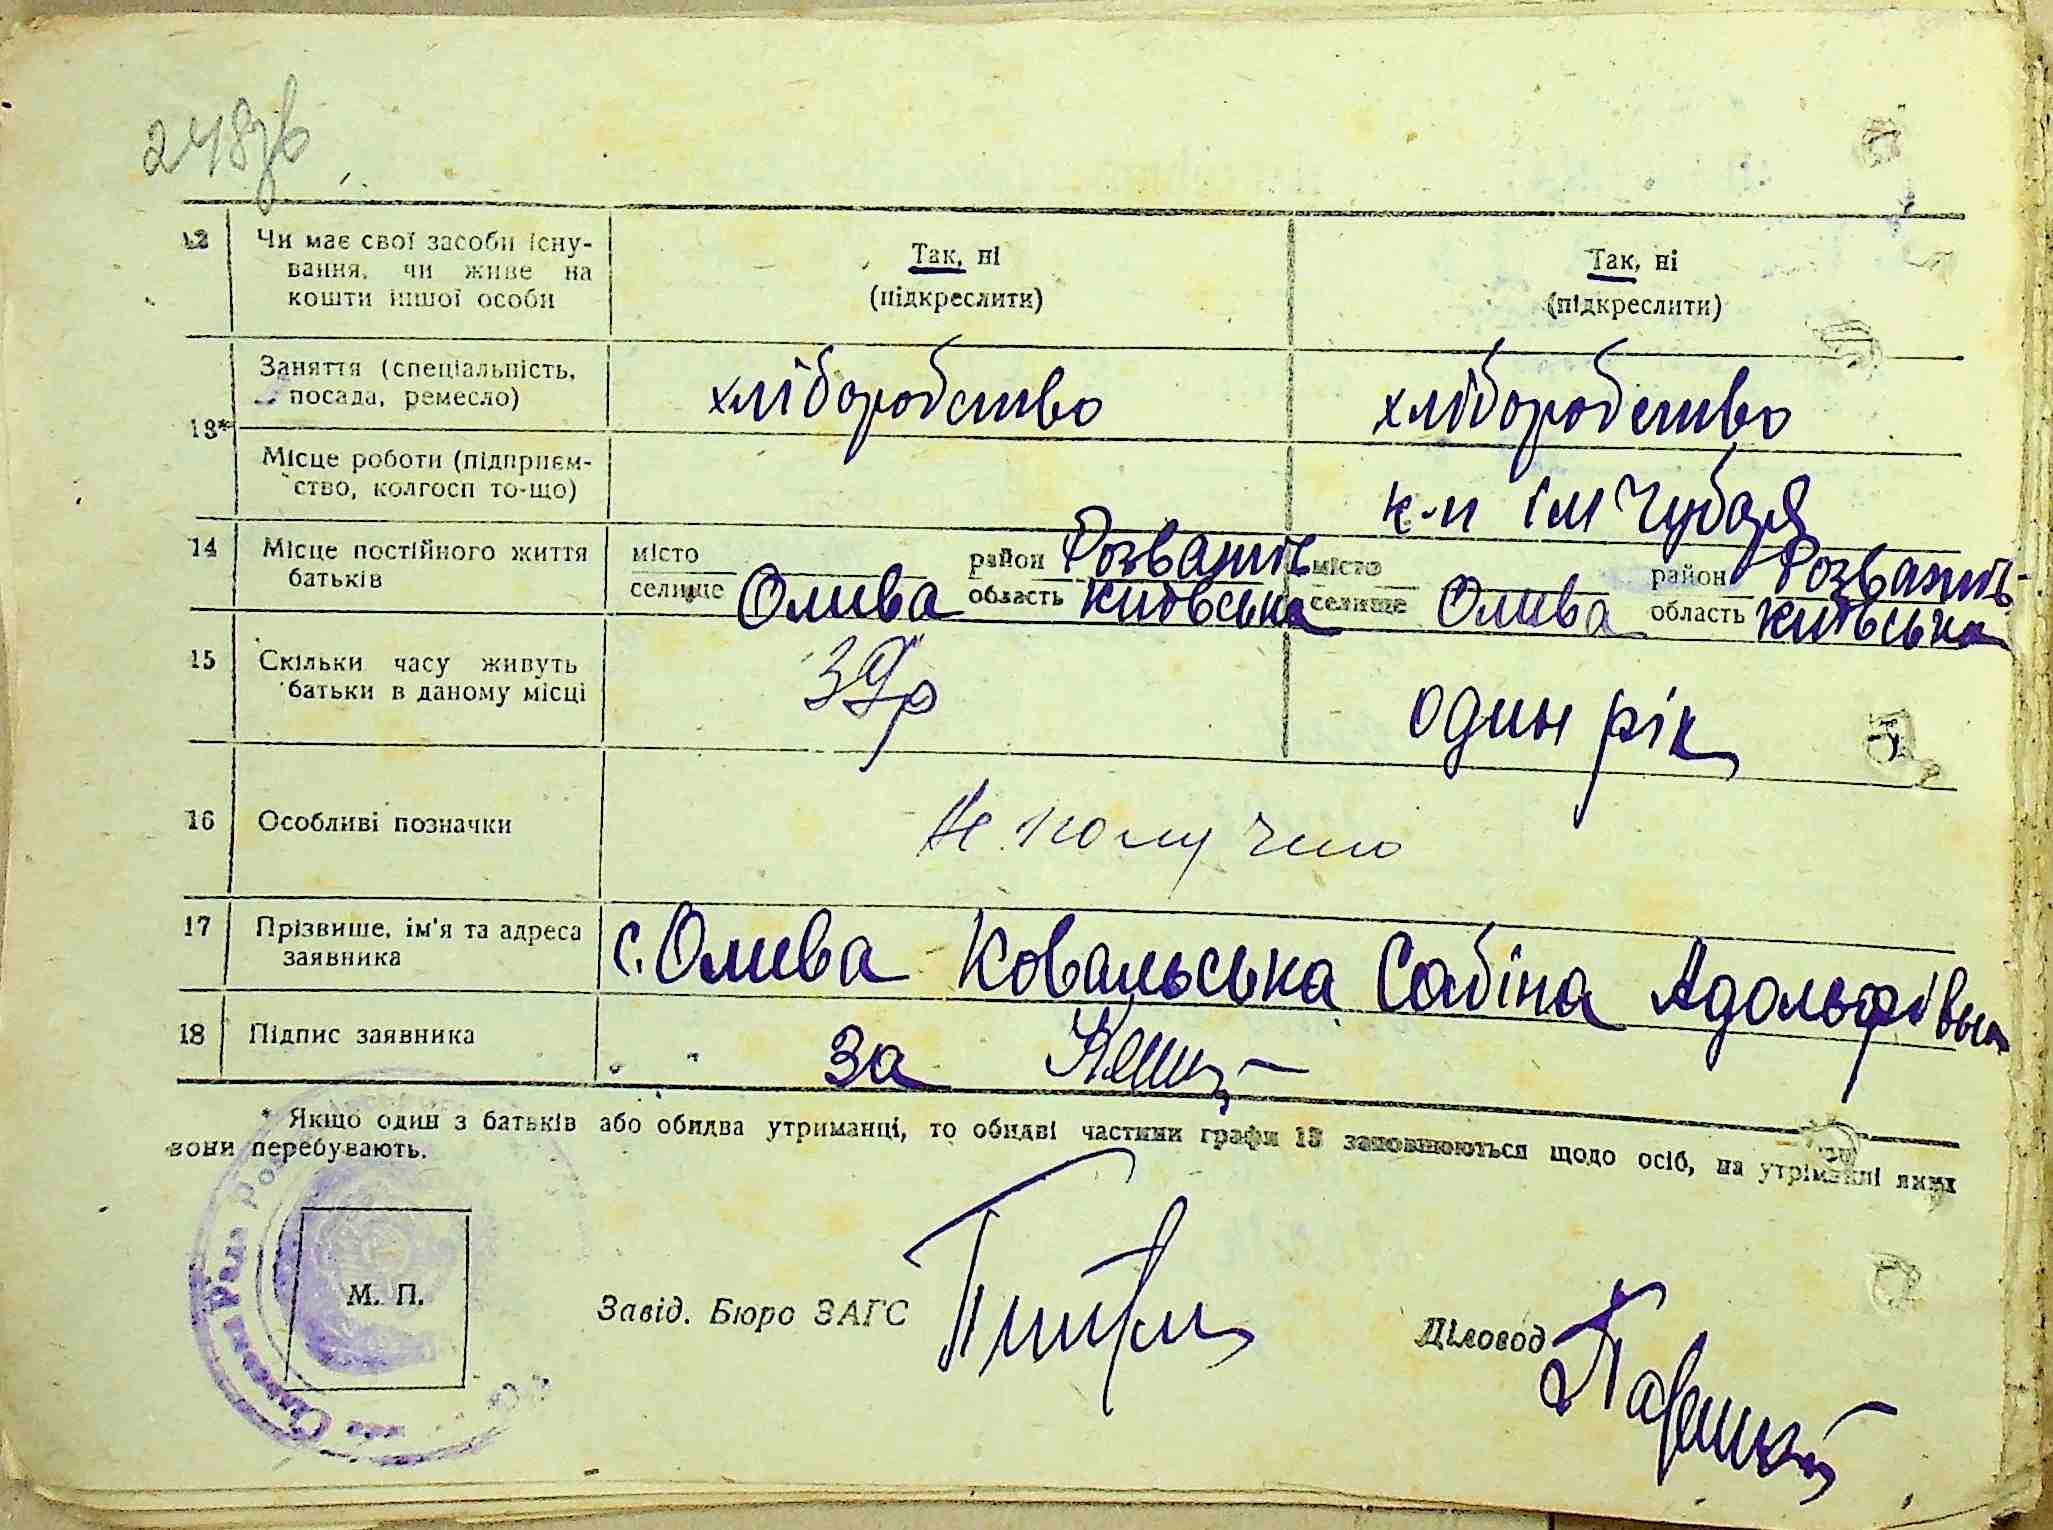 248зв
12 Чи має свої засоби існу-
вання, чи живе на
кошти іншої особи
Так, ні
(підкреслити)
Так, ні
(підкреслити)
13*
Заняття (спеціальність,
посада, ремесло)
хліборобство
хліборобство
Місце роботи (підприєм-
ство, колгосп то-що)
к-п ім Чубаря
14 Місце постійного життя
батьків
місто
селище Олива
район Розваж
область Київська
місто
селище Олива
район Розваж
область Київська
15 Скільки часу живуть
батьки в даному місці
39р
один рік
16 Особливі позначки
Не получено
17 Прізвише, ім'я та адреса
заявника
с. Олива Ковальська Сабіна Адольфівна
18 Підпис заявника
за
* Якщо один з батьків або обидва утриманці, то обидві частини графи 13 заповнюються щодо осіб, на утріманні яких
вони перебувають.
М. П.
Завід. Бюро ЗАГС
Діловод